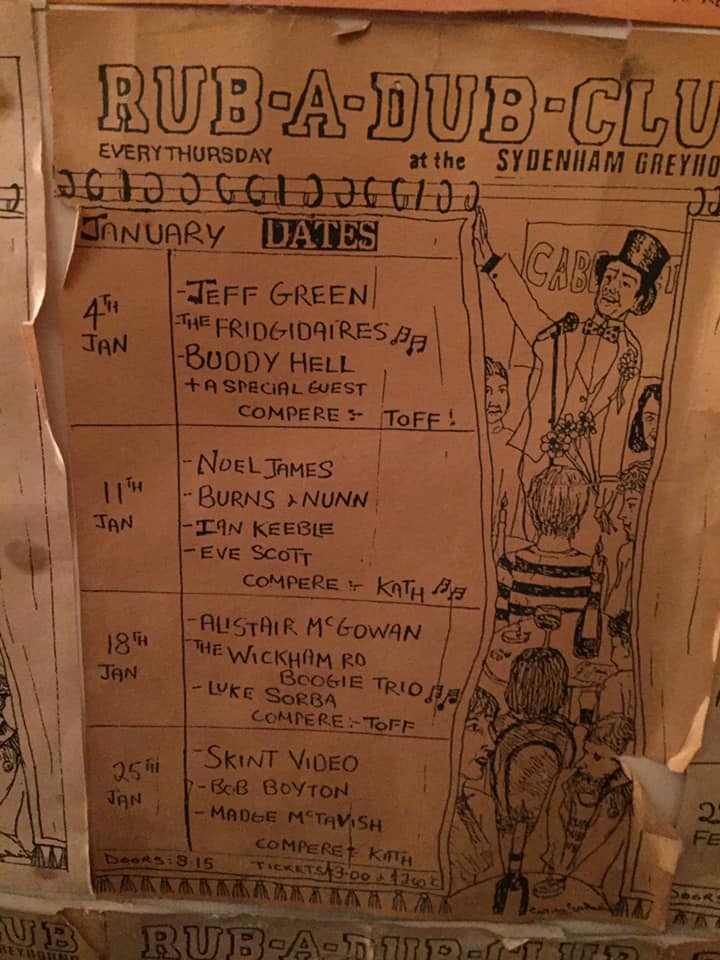 RUB-A-DUB-CLU
EVERY THURSDAY at the SYDENHAM GREYHO
JANUARY DATES
CAB
4TH JAN
-JEFF GREEN
-THE FRIDGIDAIRES
-BUDDY HELL
+ A SPECIAL GUEST
COMPERE :- TOFF!
11TH JAN
-NOEL JAMES
-BURNS & NUNN
-IAN KEEBLE
-EVE SCOTT
COMPERE :- KATH
18TH JAN
-ALISTAIR McGOWAN
THE WICKHAM RD
BOOGIE TRIO
-LUKE SORBA
COMPERE:-TOFF
25TH JAN
-SKINT VIDEO
-BOB BOYTON
-MADGE McTAVISH
COMPERE:- KATH
DOORS: 8:15 TICKETS £3.00
2
FE
DOOR
UB
RUB-A-DUB-CLUB